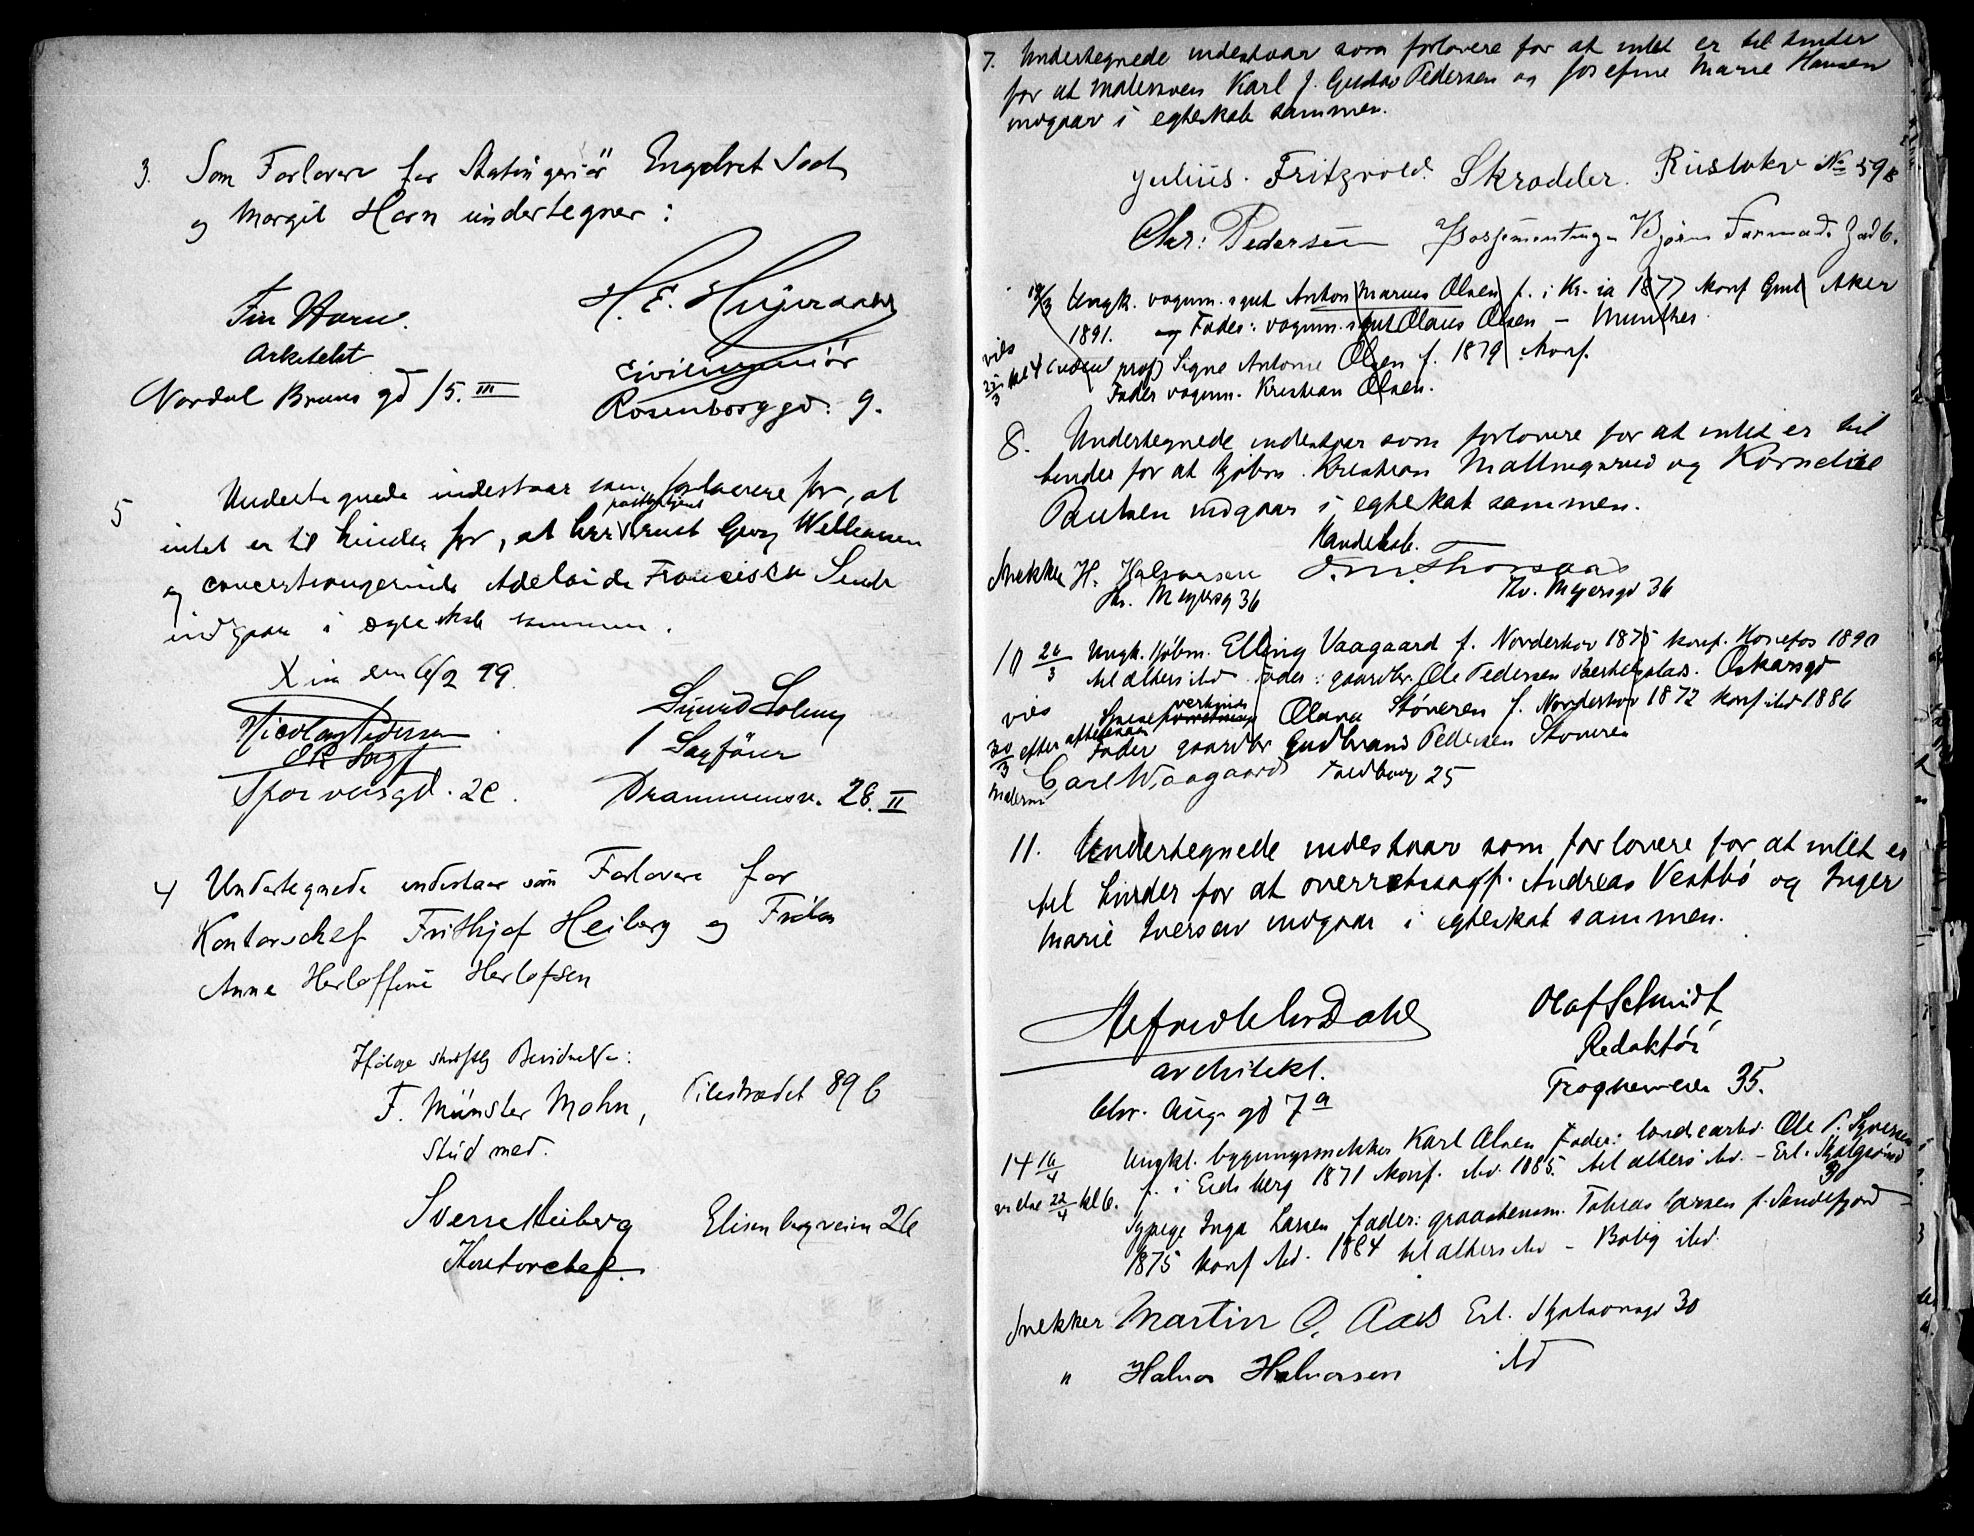 3. Som Forlovere for Engebret Soot
og Margit Horn undertegner:
Finn Horn.
Arkitekt
Nordal Bruns gd 15. III
H. E.
Civilingeniør
Rosenborggd. 9.
5 Undertegnede indestaar som forlovere for, at
intet er til hinder for, at herr Ernst Georg
og concertsangerinde Adelaide Francisca
indgaar i ægteskab sammen.
X ia den 6/2 99.
Nicolay Pedersen
O.R. Sagf
Sporveisgd. 2c.
Sagfører
Drammensv. 28. II
4 Undertegnede indestaar som Forlovere for
Kontorchef Frithjof Heiberg og Frøken
Anne Herloffine Herlofsen
Ifølge skriftlig Bevidnelse:
F. Münster Mohn, Pilestrædet 89 b
Stud med.
Sverre Heiberg Elisenbergveien 26
Kontorchef.
7. Undertegnede indestaar som forlovere for at intet er til hinder
for at malersvend Karl J. Gustav Pedersen og Josefine Marie Hansen
indgaar i egteskab sammen.
Julius. Fritzvold. Skrædder. Ruslökv No 59 B
Chr: Pedersen Bjørn Farmands Gad 6.
19/3 Ungk. vognm. Anton Marius Olsen f. i Kr.ia 1877 konf Aker
1891. Fader: vognm. Olaus Olsen – Munthes
vies
25/3 kl 4 Signe Antonie Olsen f. 1879 konf.
Fader vognm. Kristian Olsen.
8. Undertegnede indestaar som forlovere for at intet er til
hinder for at kjøbm. Kristian Mallingsrud og Kornelie
Paulsen indgaar i egteskab sammen.
Snekker H. Halvorsen
Th. Meyersg 36
Handelsb.
Th. Meyersgd 36
10 26/3 Ungk. kjøbm. Elling Vaagaard f. Norderhov 1875 konf. Hønefos 1890
til alters ibd Fader: gaardbr. Ole Pedersen Oskarsgd
vies Olava Støveren f. Norderhov 1872 konf ibd 1886
30/3 efter aftensang Fader gaardbr Gudbrand Pedersen Støveren
Malerm Carl Waagaard Toldbodg 25
11. Undertegnede indestaar som forlovere for at intet er
til hinder for at overretssagf. Andreas Vestbö og Inger
Marie Iversen indgaar i egteskab sammen.
Alfred Chr Dahl
architekt.
Chr. Aug. gd 7a
Olaf Schmidt
Redaktör
Frognerveien 35.
14 16/4 Ungkl. bygningssnekker Karl Olsen Fader: landsearb. Ole P. Syversen
vies 22/4 kl 6. f. i Eidsberg 1871 konf. ibd. 1885. til alters ibd. – Erl. 30
Sypige Inga Larsen fader: graastensm. Tobias Larsen f. Sandefjord
1875 konf ibd. 1884 til alters ibd – Bolig ibd.
Snekker Martin O. Aas Erl. 30
" Halvor Halvorsen ibd